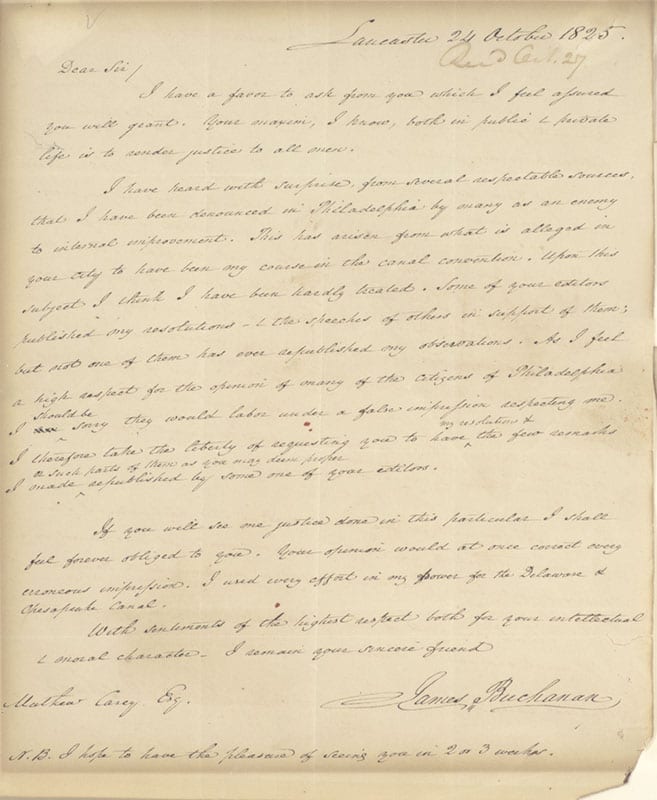 Lancaster 24 October 1825.
Rec'd Oct. 27
Dear Sir/
I have a favor to ask from you which I feel assured
you will grant. Your maxim, I know, both in public & private
life is to render justice to all men.
I have heard with surprise, from several respectable sources,
that I have been denounced in Philadelphia by many as an enemy
to internal improvement. This has arisen from what is alleged in
your city to have been my course in the canal convention. Upon this
subject I think I have been hardly treated. Some of your editors
published my resolutions - & the speeches of others in support of them;
but not one of them has ever republished my observations. As I feel
a high respect for the opinion of many of the citizens of Philadelphia
should be
I sorry they would labor under a false impression respecting me.
my resolutions &
I therefore take the liberty of requesting you to have the few remarks
or such parts of them as you may deem proper
I made republished by some one of your editors.
If you will see me justice done in this particular I shall
feel forever obliged to you. Your opinion would at once correct every
erroneous impression. I used every effort in my power for the Delaware &
Chesapeake Canal.
With sentiments of the highest respect both for your intellectual
& moral character - I remain your sincere friend
James Buchanan
Mathew Carey Esq.
N.B. I hope to have the pleasure of seeing you in 2 or 3 weeks.